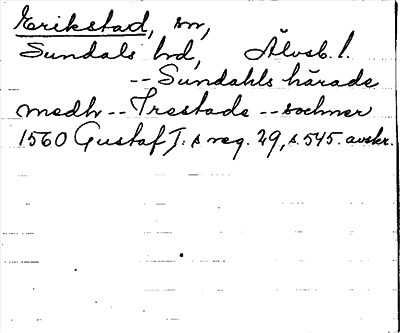 Erikstad, sn,
Sundals hd, Älvsb. l.
-- Sundahls härade
medh -- Trestade -- sochner
1560 Gustaf I:s reg. 29, s. 545. avskr.